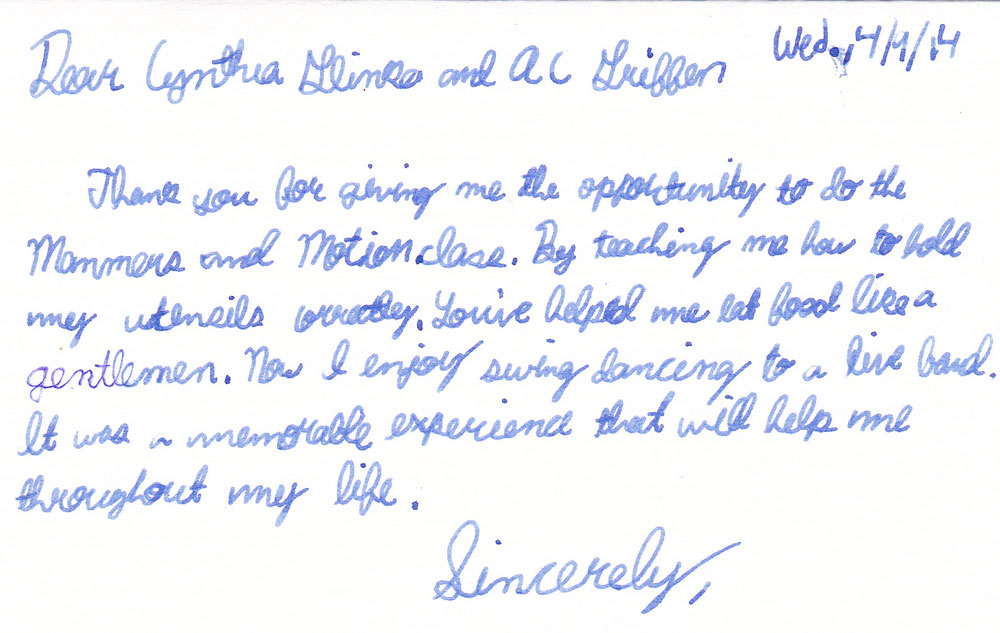 Wed., 4/9/14
Dear Cynthia Glinka and AC Griffen
Thank you for giving me the opportunity to do the
Manners and Motion class. By teaching me how to hold
my utensils correctley. You've helped me eat food like a
gentlemen. Now I enjoy swing dancing to a live band.
It was a memorable experience that will help me
throughout my life.
Sincerely,